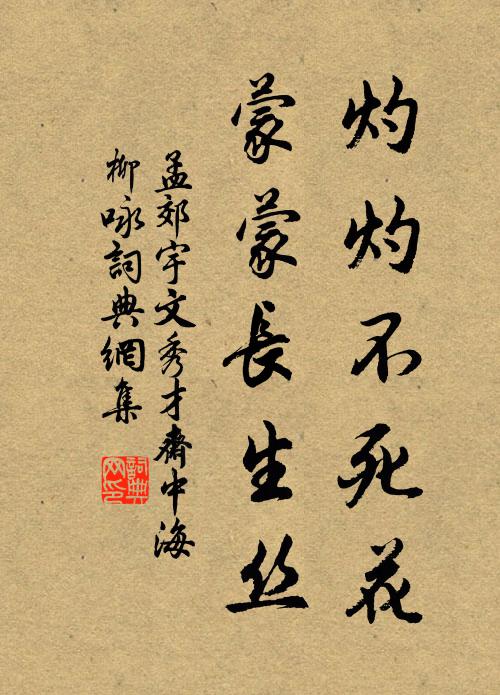 灼灼不死花
蒙蒙長生丝
孟郊宇文秀才齋中海
柳咏詞典網集
詞典网印